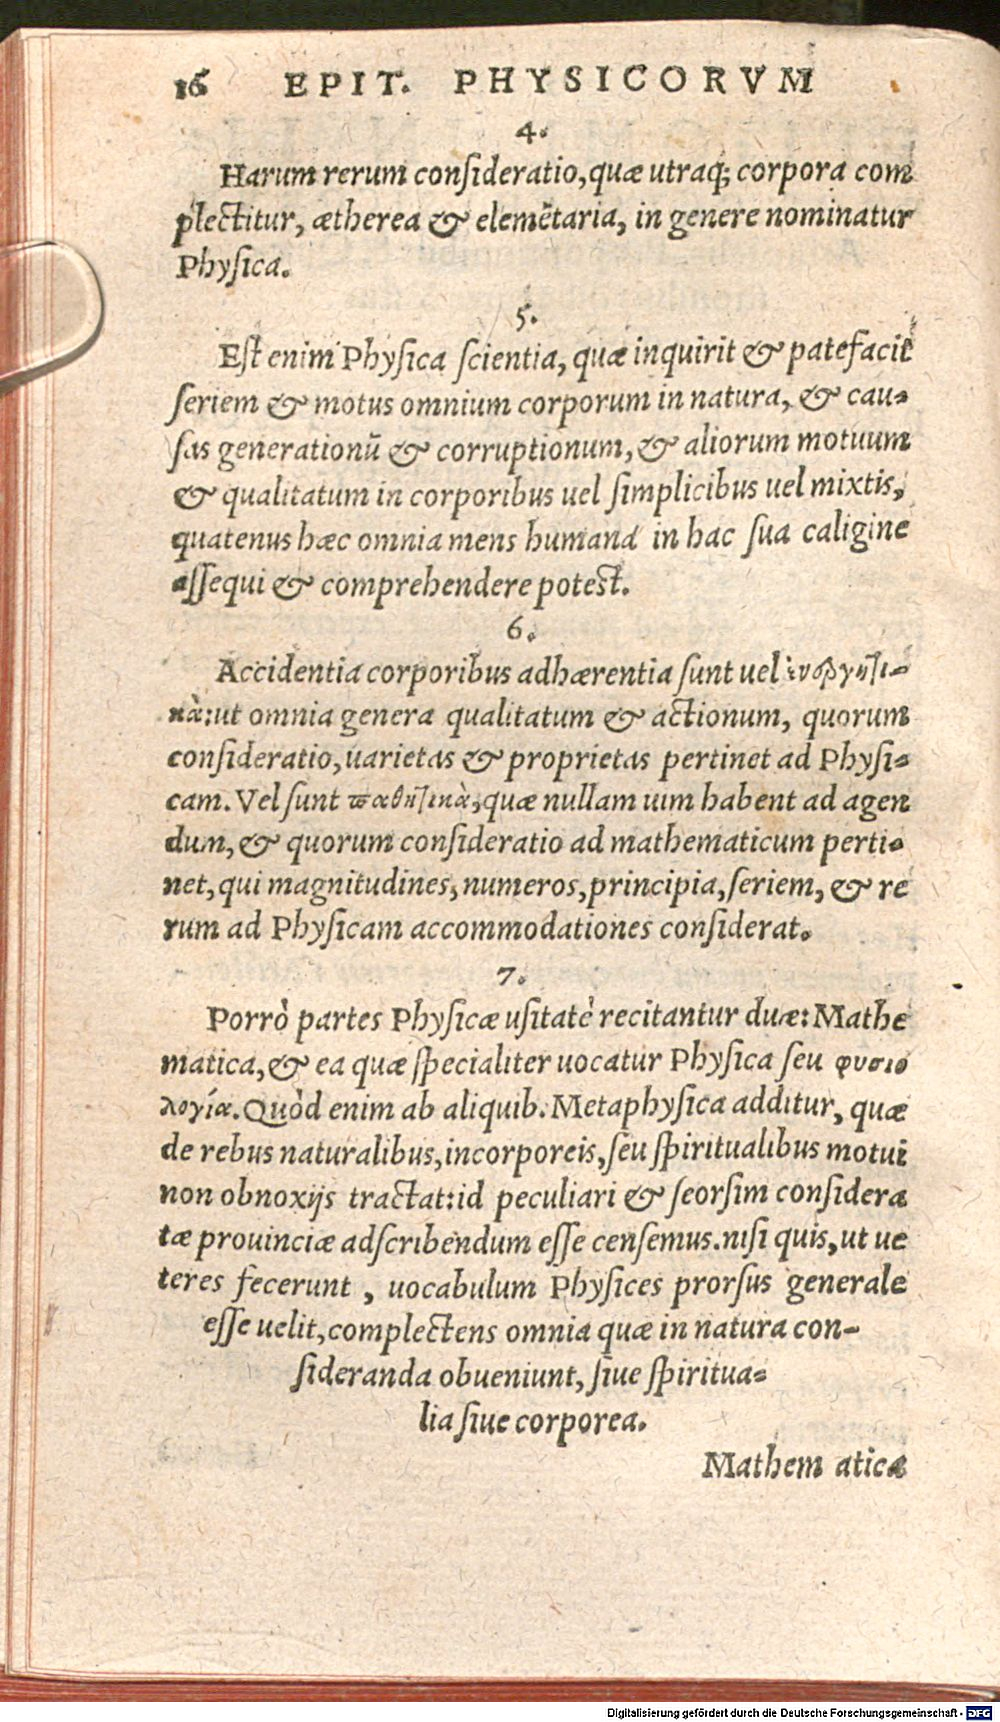 16 EPIT. PHYSICORVM
4.
Harum rerum consideratio, quæ utraq; corpora com
plectitur, ætherea & elemẽtaria, in genere nominatur
Physica.
5.
Est enim Physica scientia, quæ inquirit & patefacit
seriem & motus omnium corporum in natura, & cau-
sas generationũ & corruptionum, & aliorum motuum
& qualitatum in corporibus uel simplicibus uel mixtis,
quatenus hæc omnia mens humana in hac sua caligine
assequi & comprehendere potest.
6.
Accidentia corporibus adhærentia sunt uel ἐνεργητι-
κὰ: ut omnia genera qualitatum & actionum, quorum
consideratio, uarietas & proprietas pertinet ad Physi-
cam. Vel sunt παθητικὰ, quæ nullam uim habent ad agen
dum, & quorum consideratio ad mathematicum perti-
net, qui magnitudines, numeros, principia, seriem, & re
rum ad Physicam accommodationes considerat.
7.
Porrò partes Physicæ usitatè recitantur duæ: Mathe
matica, & ea quæ specialiter uocatur Physica seu φυσιο
λογία. Quòd enim ab aliquib. Metaphysica additur, quæ
de rebus naturalibus, incorporeis, seu spiritualibus motui
non obnoxijs tractat: id peculiari & seorsim considera
tæ prouinciæ adscribendum esse censemus. nisi quis, ut ue
teres fecerunt, uocabulum Physices prorsus generale
esse uelit, complectens omnia quæ in natura con-
sideranda obueniunt, siue spiritua-
lia siue corporea.
Mathematica
Digitalisierung gefördert durch die Deutsche Forschungsgemeinschaft - DFG